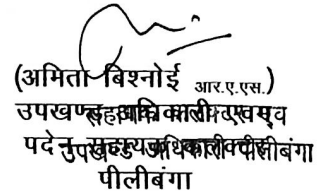 (अमिता बिश्नोई आर.ए.एस.)
उपखण्ड अधिकारी एवम्
पदेन सहायक कलक्टर
उपखण्ड अधिकारी पीलीबंगा
पीलीबंगा